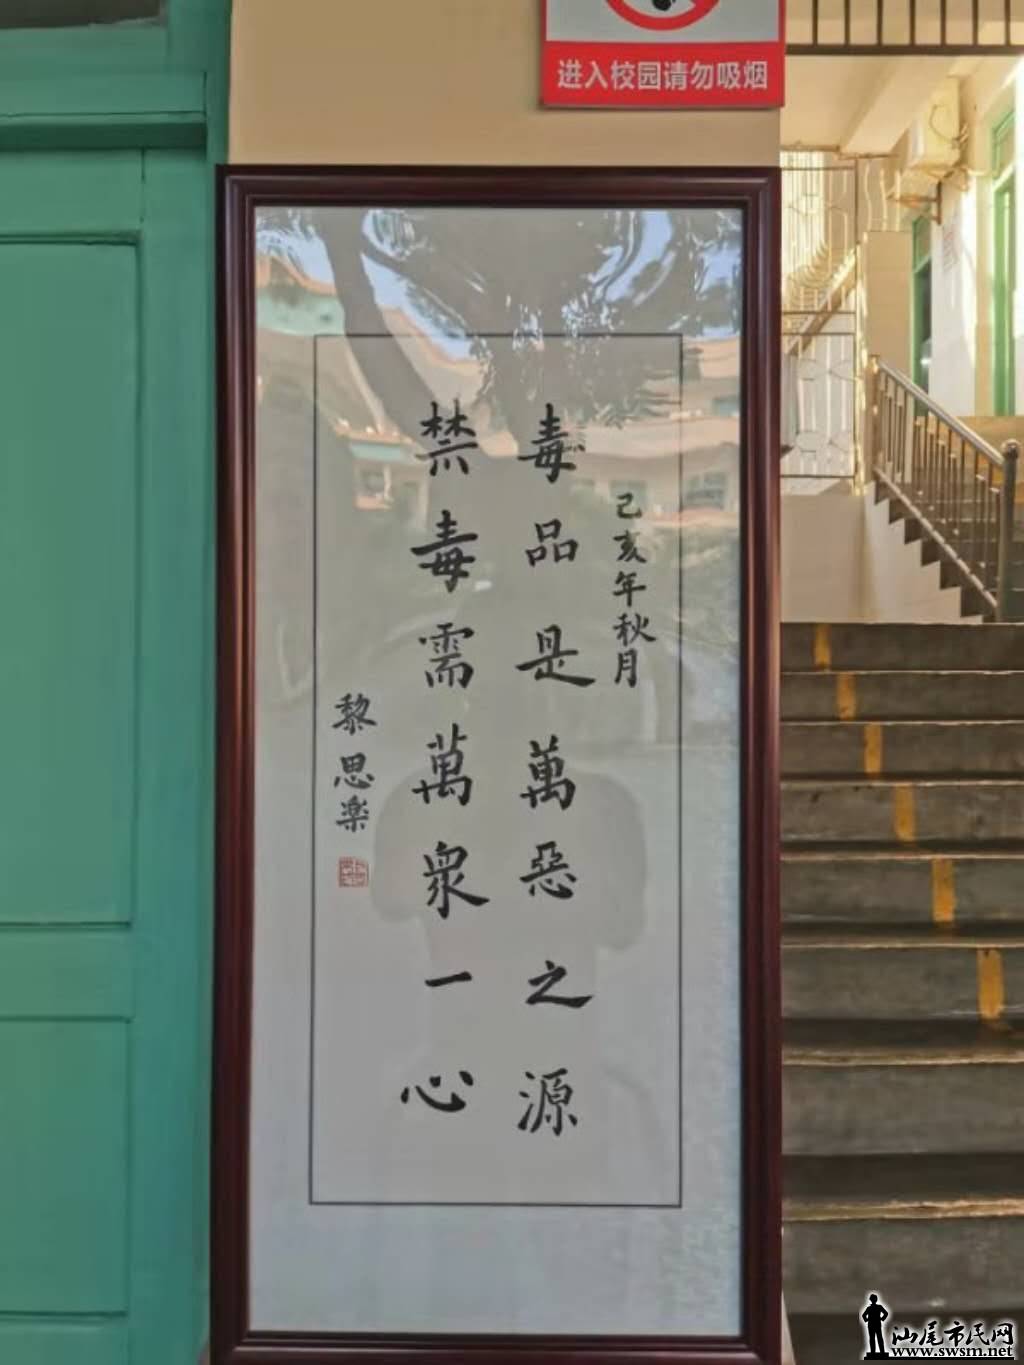 进入校园请勿吸烟
己亥年秋月
毒品是萬惡之源
禁毒需萬衆一心
黎思楽
汕尾市民网
www.swsm.net